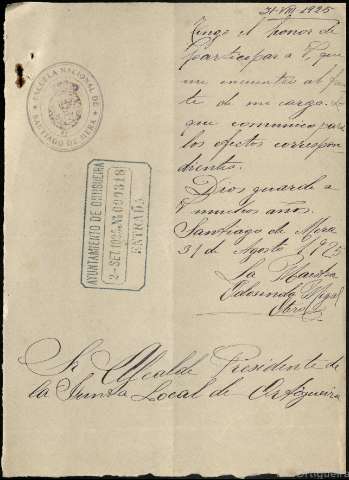 31-VIII-1925
Tengo el honor de
participar a V. que
me encuentro al fren
te de mi cargo. Lo
que comunico para
los efectos correspon
dientes.
Dios guarde a
V. muchos años.
Santiago de Mera
31 de Agosto 1925
La Maestra
ESCUELA NACIONAL DE
SANTIAGO DE MERA
AYUNTAMIENTO DE ORTIGUEIRA
2-SET.1925 № 000818
ENTRADA
Sr. Alcalde Presidente de
la Junta Local de Ortigueira
Ortigueira